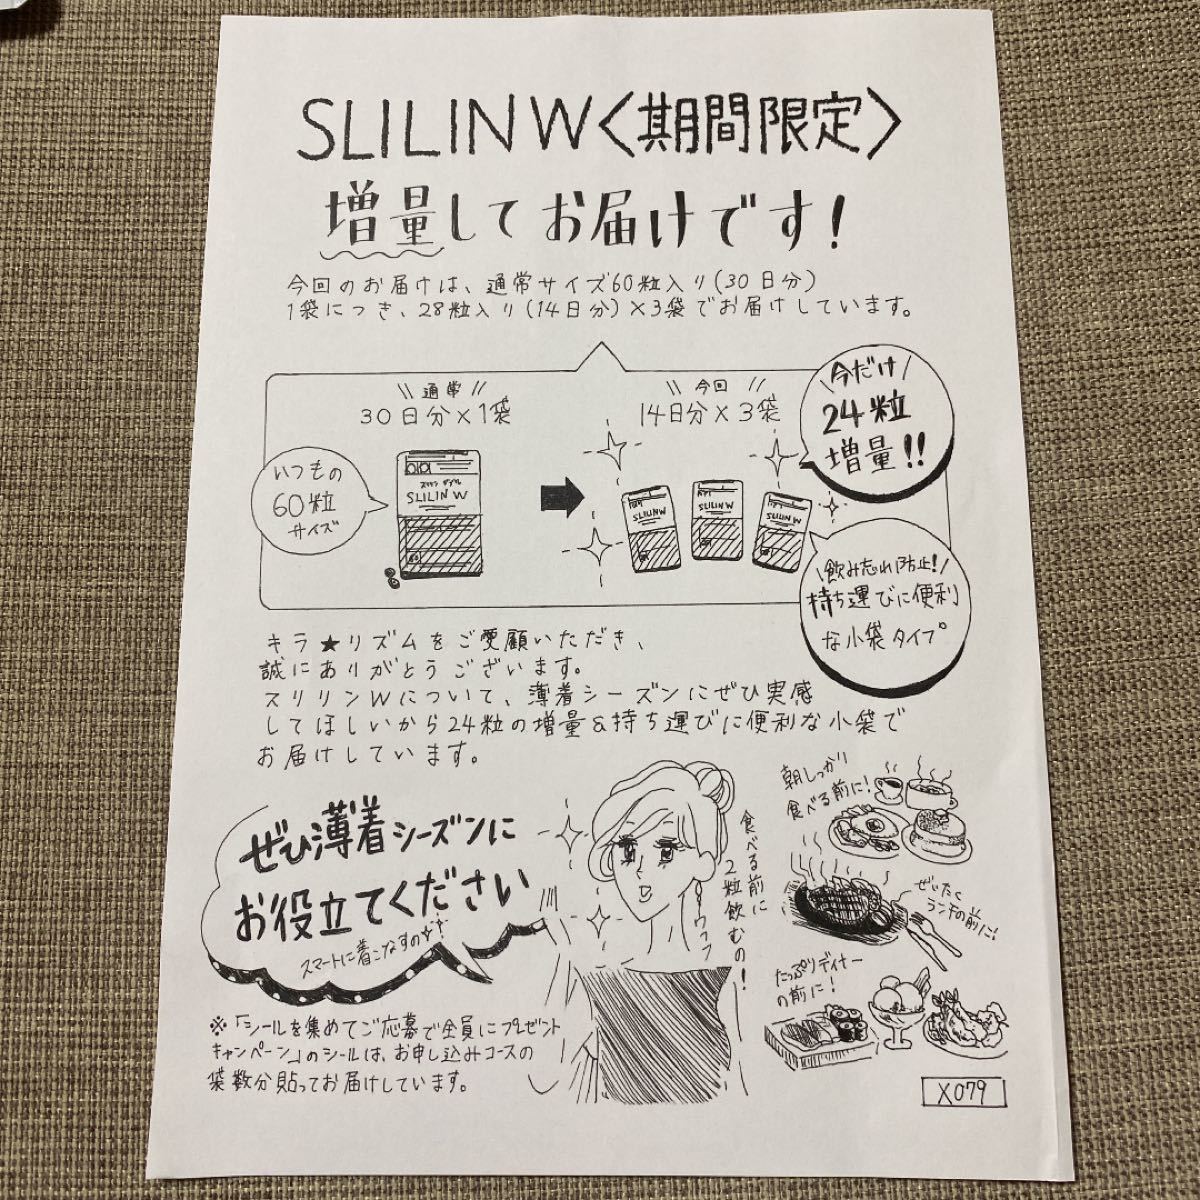 SLILIN W〈期間限定〉
増量してお届けです!
今回のお届けは、通常サイズ60粒入り(30日分)
1袋につき、28粒入り(14日分)×3袋でお届けしています。
\\ 通常 //
30日分×1袋
\\ 今回 //
14日分×3袋
\今だけ/
24粒
増量!!
いつもの
60粒
サイズ
スリリン ダブル
SLILIN W
SLILIN W
SLILIN W
SLILIN W
\飲み忘れ防止!/
持ち運びに便利
な小袋タイプ
キラ★リズムをご愛顧いただき、
誠にありがとうございます。
スリリンWについて、薄着シーズンにぜひ実感
してほしいから24粒の増量&持ち運びに便利な小袋で
お届けしています。
ぜひ薄着シーズンに
お役立てください
スマートに着こなすの☆
食べる前に
2粒飲むの!
ウフフ
朝しっかり
食べる前に!
ぜいたく
ランチの前に!
たっぷりディナー
の前に!
※「シールを集めてご応募で全員にプレゼント
キャンペーン」のシールは、お申し込みコースの
袋数分貼ってお届けしています。
X079